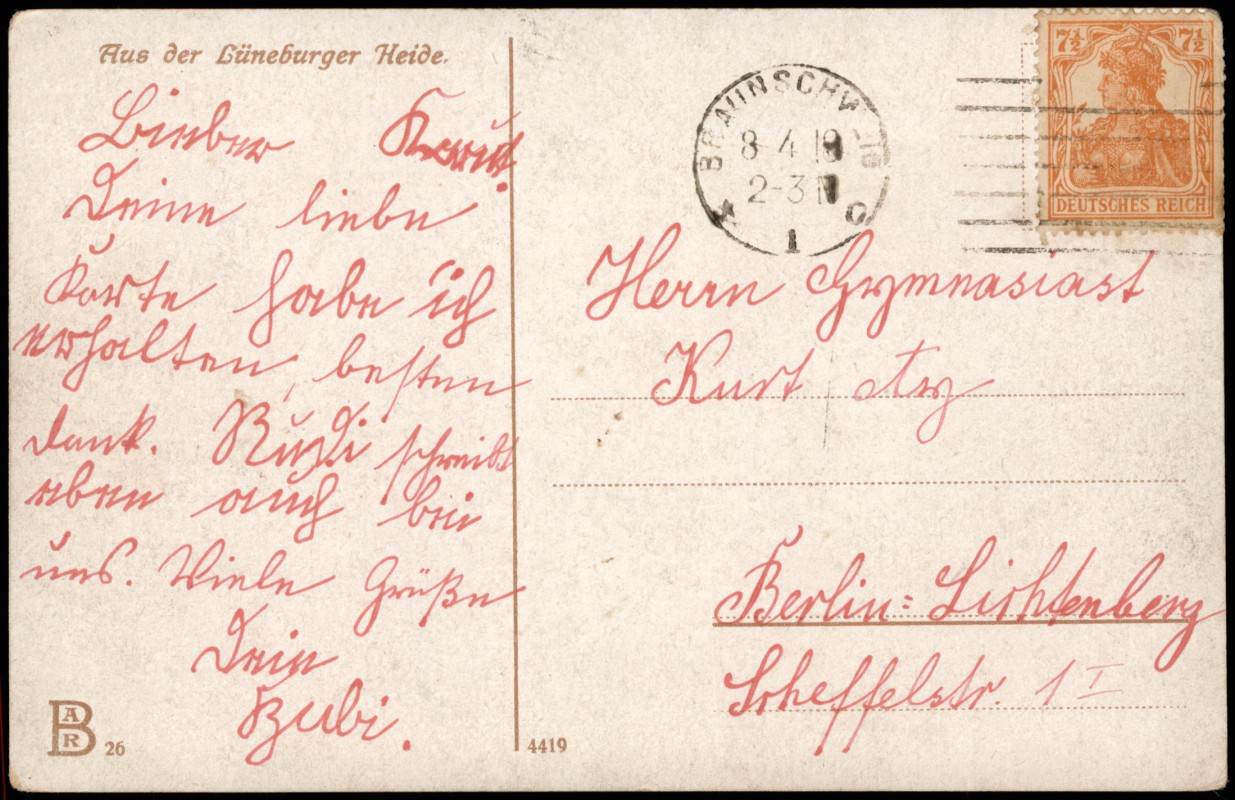 Aus der Lüneburger Heide.
Lieber Kurt!
Deine liebe
Karte habe ich
erhalten, besten
Dank. Rudi schreibt
eben auch bei
uns. Viele Grüße
Dein
Bubi.
BAR 26
4419
BRAUNSCHWEIG
8 4 18
2-3 N
* 1 o
7½ 7½
DEUTSCHES REICH
Herrn Gymnasiast
Kurt
Berlin=Lichtenberg
Scheffelstr. 1 I